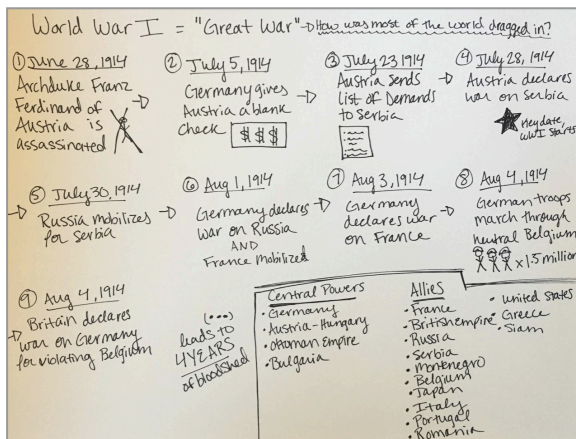 World War I = "Great War" → How was most of the world dragged in?
① June 28, 1914
Archduke Franz
Ferdinand of
Austria is
assassinated
② July 5, 1914
Germany gives
Austria a blank
check $ $ $
③ July 23 1914
Austria sends
list of Demands
to Serbia
④ July 28, 1914
Austria declares
war on Serbia
Key date,
WWI starts
⑤ July 30, 1914
Russia mobilizes
for Serbia
⑥ Aug 1, 1914
Germany declares
war on Russia
AND
France mobilized
⑦ Aug 3, 1914
Germany
declares war
on France
⑧ Aug 4, 1914
German troops
march through
neutral Belgium
x 1.5 million
⑨ Aug 4, 1914
Britain declares
war on Germany
for violating Belgium
(...)
leads to
4 YEARS
of bloodshed
Central Powers
• Germany
• Austria-Hungary
• Ottoman Empire
• Bulgaria
Allies
• France
• British empire
• Russia
• Serbia
• Montenegro
• Belgium
• Japan
• Italy
• Portugal
• Romania
• United States
• Greece
• Siam